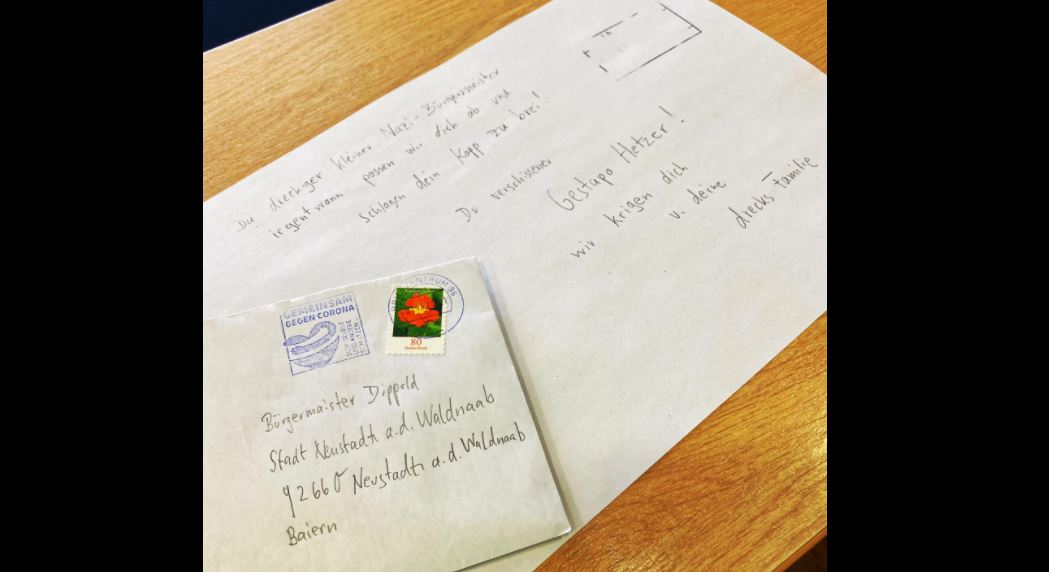 Du dreckiger kleiner Nazi-Bürgermeister
irgentwann passen wir dich ab und
schlagen dein Kopp zu brei!
Du verschissener
Gestapo Hetzer!
wir krigen dich
u. deine
drecks-familie
GEMEINSAM
GEGEN CORONA
ZENTRUM 96
80
Deutschland
Bürgermaister Dippold
Stadt Neustadt a.d. Waldnaab
92660 Neustadt a.d. Waldnaab
Baiern